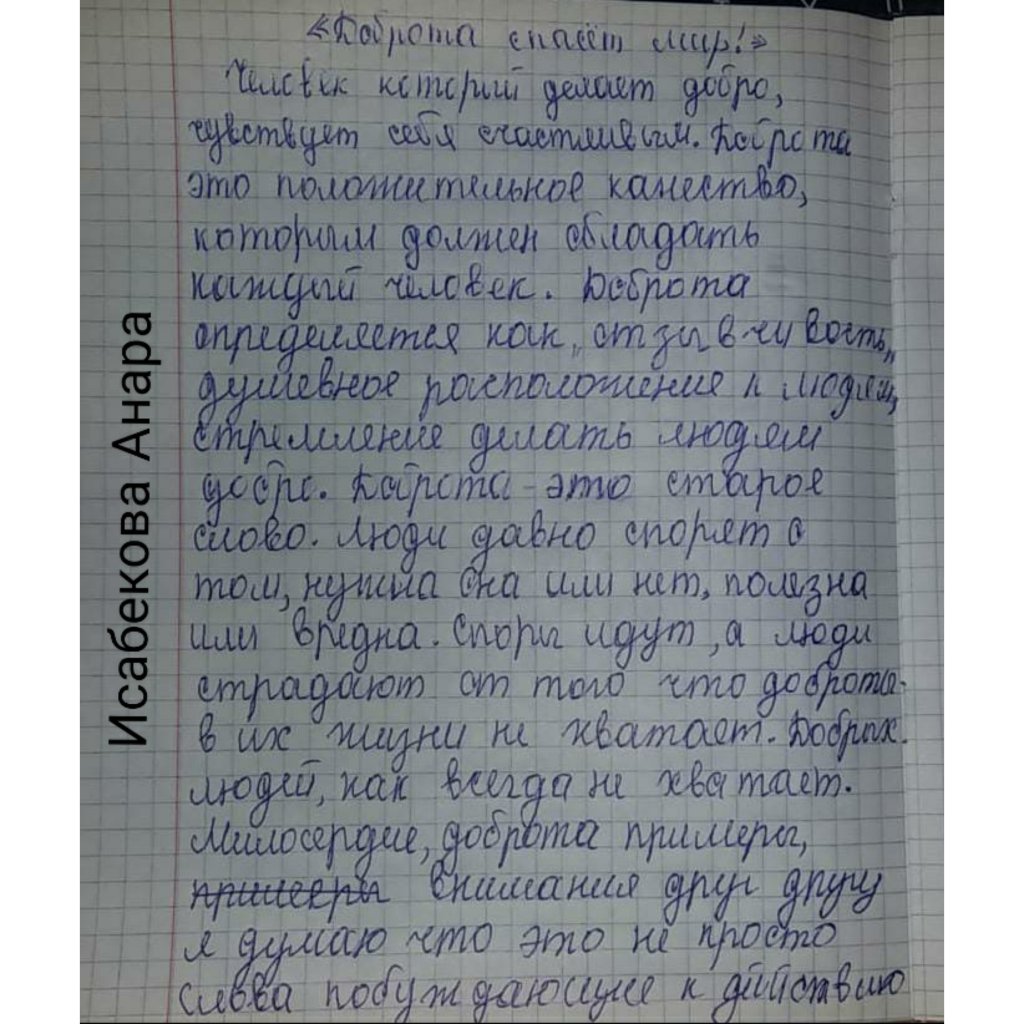 «Доброта спасёт мир!»
Человек который делает добро,
чувствует себя счастливым. Доброта
это положительное качество,
которым должен обладать
каждый человек. Доброта
определяется как „отзывчивость„
душевное расположение к людям,
стремление делать людям
добро. Доброта - это старое
слово. Люди давно спорят о
том, нужна она или нет, полезна
или вредна. Споры идут, а люди
страдают от того что доброты
в их жизни не хватает. Добрых
людей, как всегда не хватает.
Милосердие, доброта примеры,
примеры внимания друг другу
я думаю что это не просто
слова побуждающие к действию
Исабекова Анара